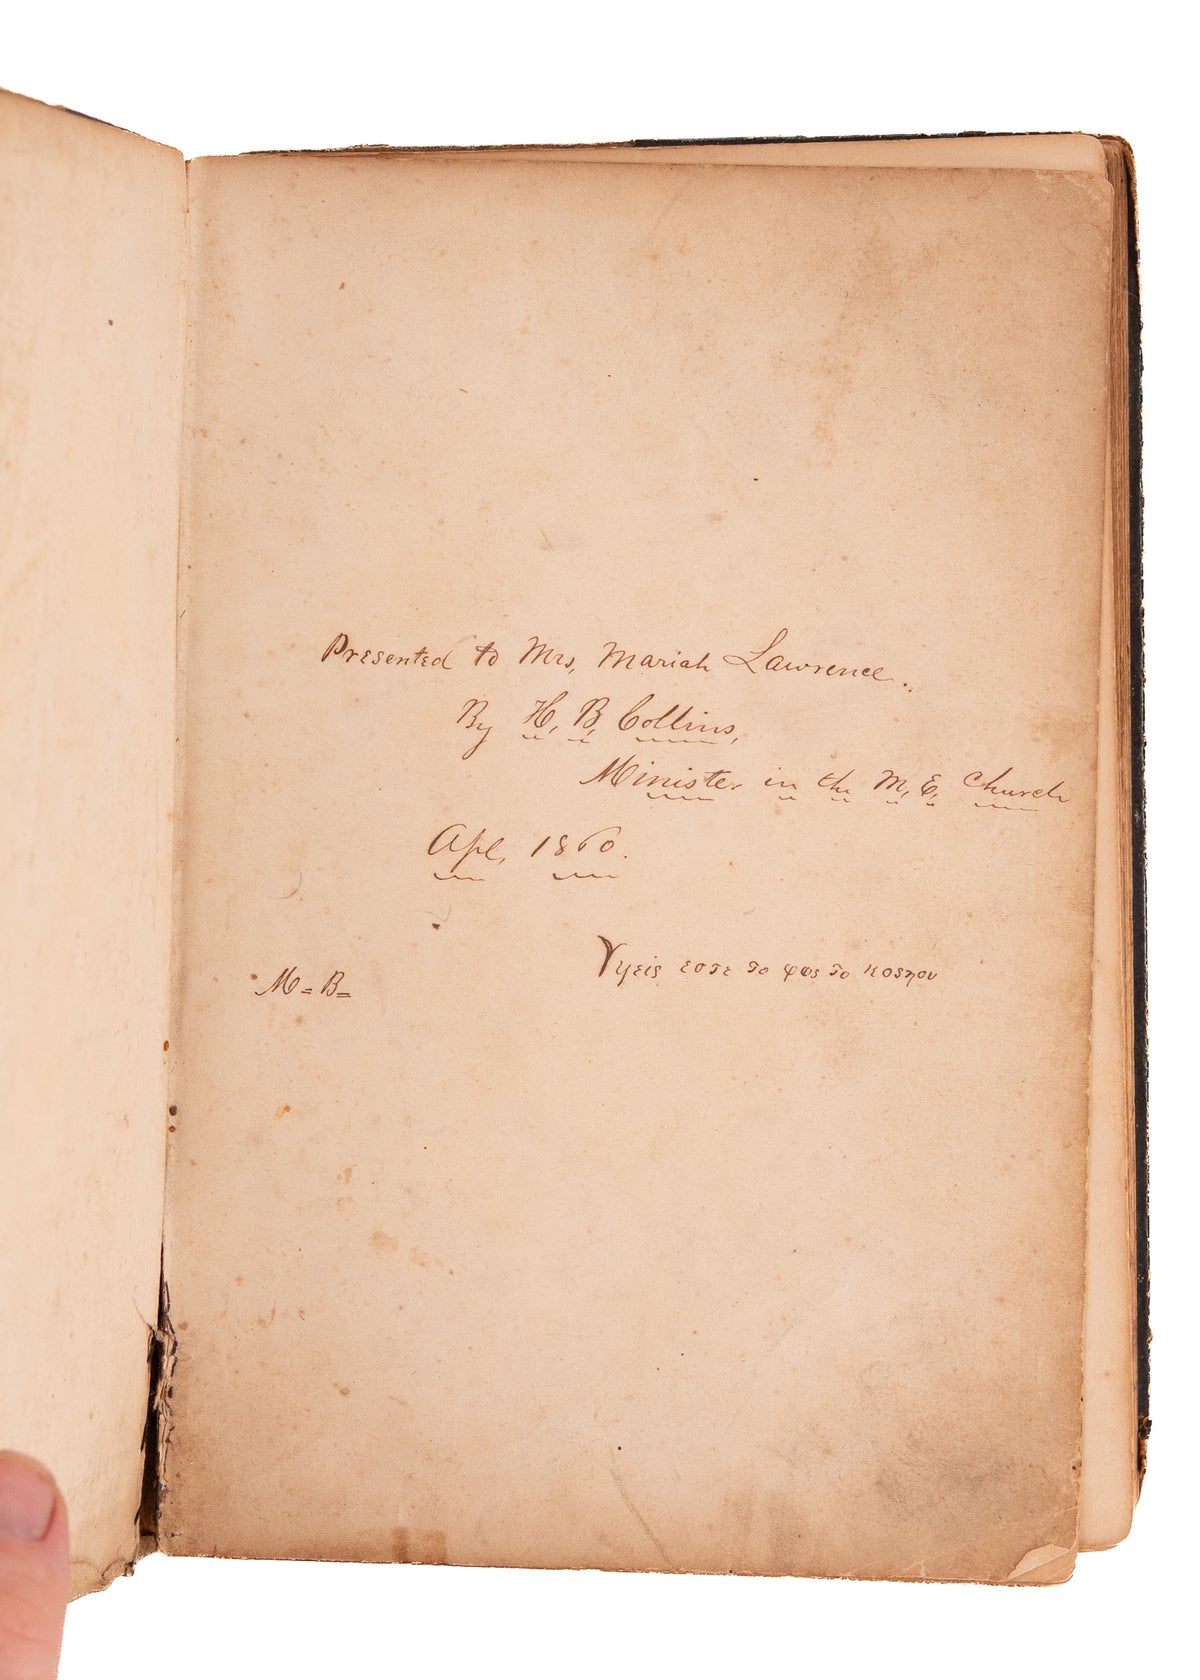 Presented to Mrs, Mariah Lawrence..
By H, B, Collins,
Minister in the M, E, Church
Apl, 1860.
Υμεις εστε το φως το κοσμου
M = B =